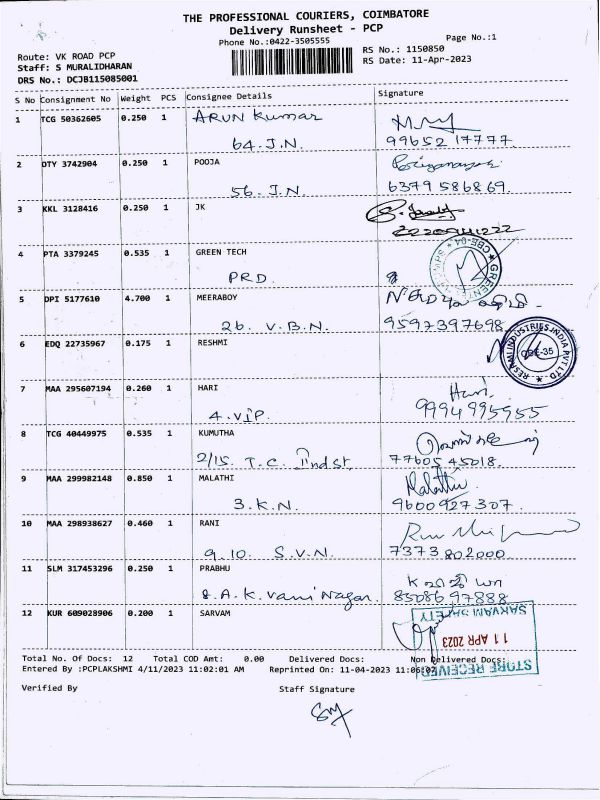 THE PROFESSIONAL COURIERS, COIMBATORE
Delivery Runsheet - PCP
Phone No.:0422-3505555
Page No.:1
Route: VK ROAD PCP
RS No.: 1150850
Staff: S MURALIDHARAN
RS Date: 11-Apr-2023
DRS No.: DCJB115085001
S No Consignment No Weight PCS Consignee Details Signature
1 TCG 50362605 0.250 1 ARUN Kumar
64. J.N. 99652 17777
2 DTY 3742904 0.250 1 POOJA
56. J.N. 6379 586869.
3 KKL 3128416 0.250 1 JK
4 PTA 3379245 0.535 1 GREEN TECH
PRD.
5 DPI 5177610 4.700 1 MEERABOY
26. V.B.N. 9597397698
6 EDQ 22735967 0.175 1 RESHMI
RESHMI INDUSTRIES INDIA PVT LTD
CBE-35
7 MAA 295607194 0.260 1 HARI Hari
4. VIP. 9994995955
8 TCG 40449975 0.535 1 KUMUTHA
2/15. T.C. Ind st. 77605 45018.
9 MAA 299982148 0.850 1 MALATHI Malathi
3. K.N. 9600927307.
10 MAA 298938627 0.460 1 RANI
9.10. S.V.N. 7373802000
11 SLM 317453296 0.250 1 PRABHU
8. A.K. Vani Nagar. 85086 97888
12 KUR 609028906 0.200 1 SARVAM
SARVAM SAFETY
11 APR 2023
STORE RECEIVED
Total No. Of Docs: 12 Total COD Amt: 0.00 Delivered Docs: Non Delivered Docs:
Entered By :PCPLAKSHMI 4/11/2023 11:02:01 AM Reprinted On: 11-04-2023 11:06:02
Verified By Staff Signature